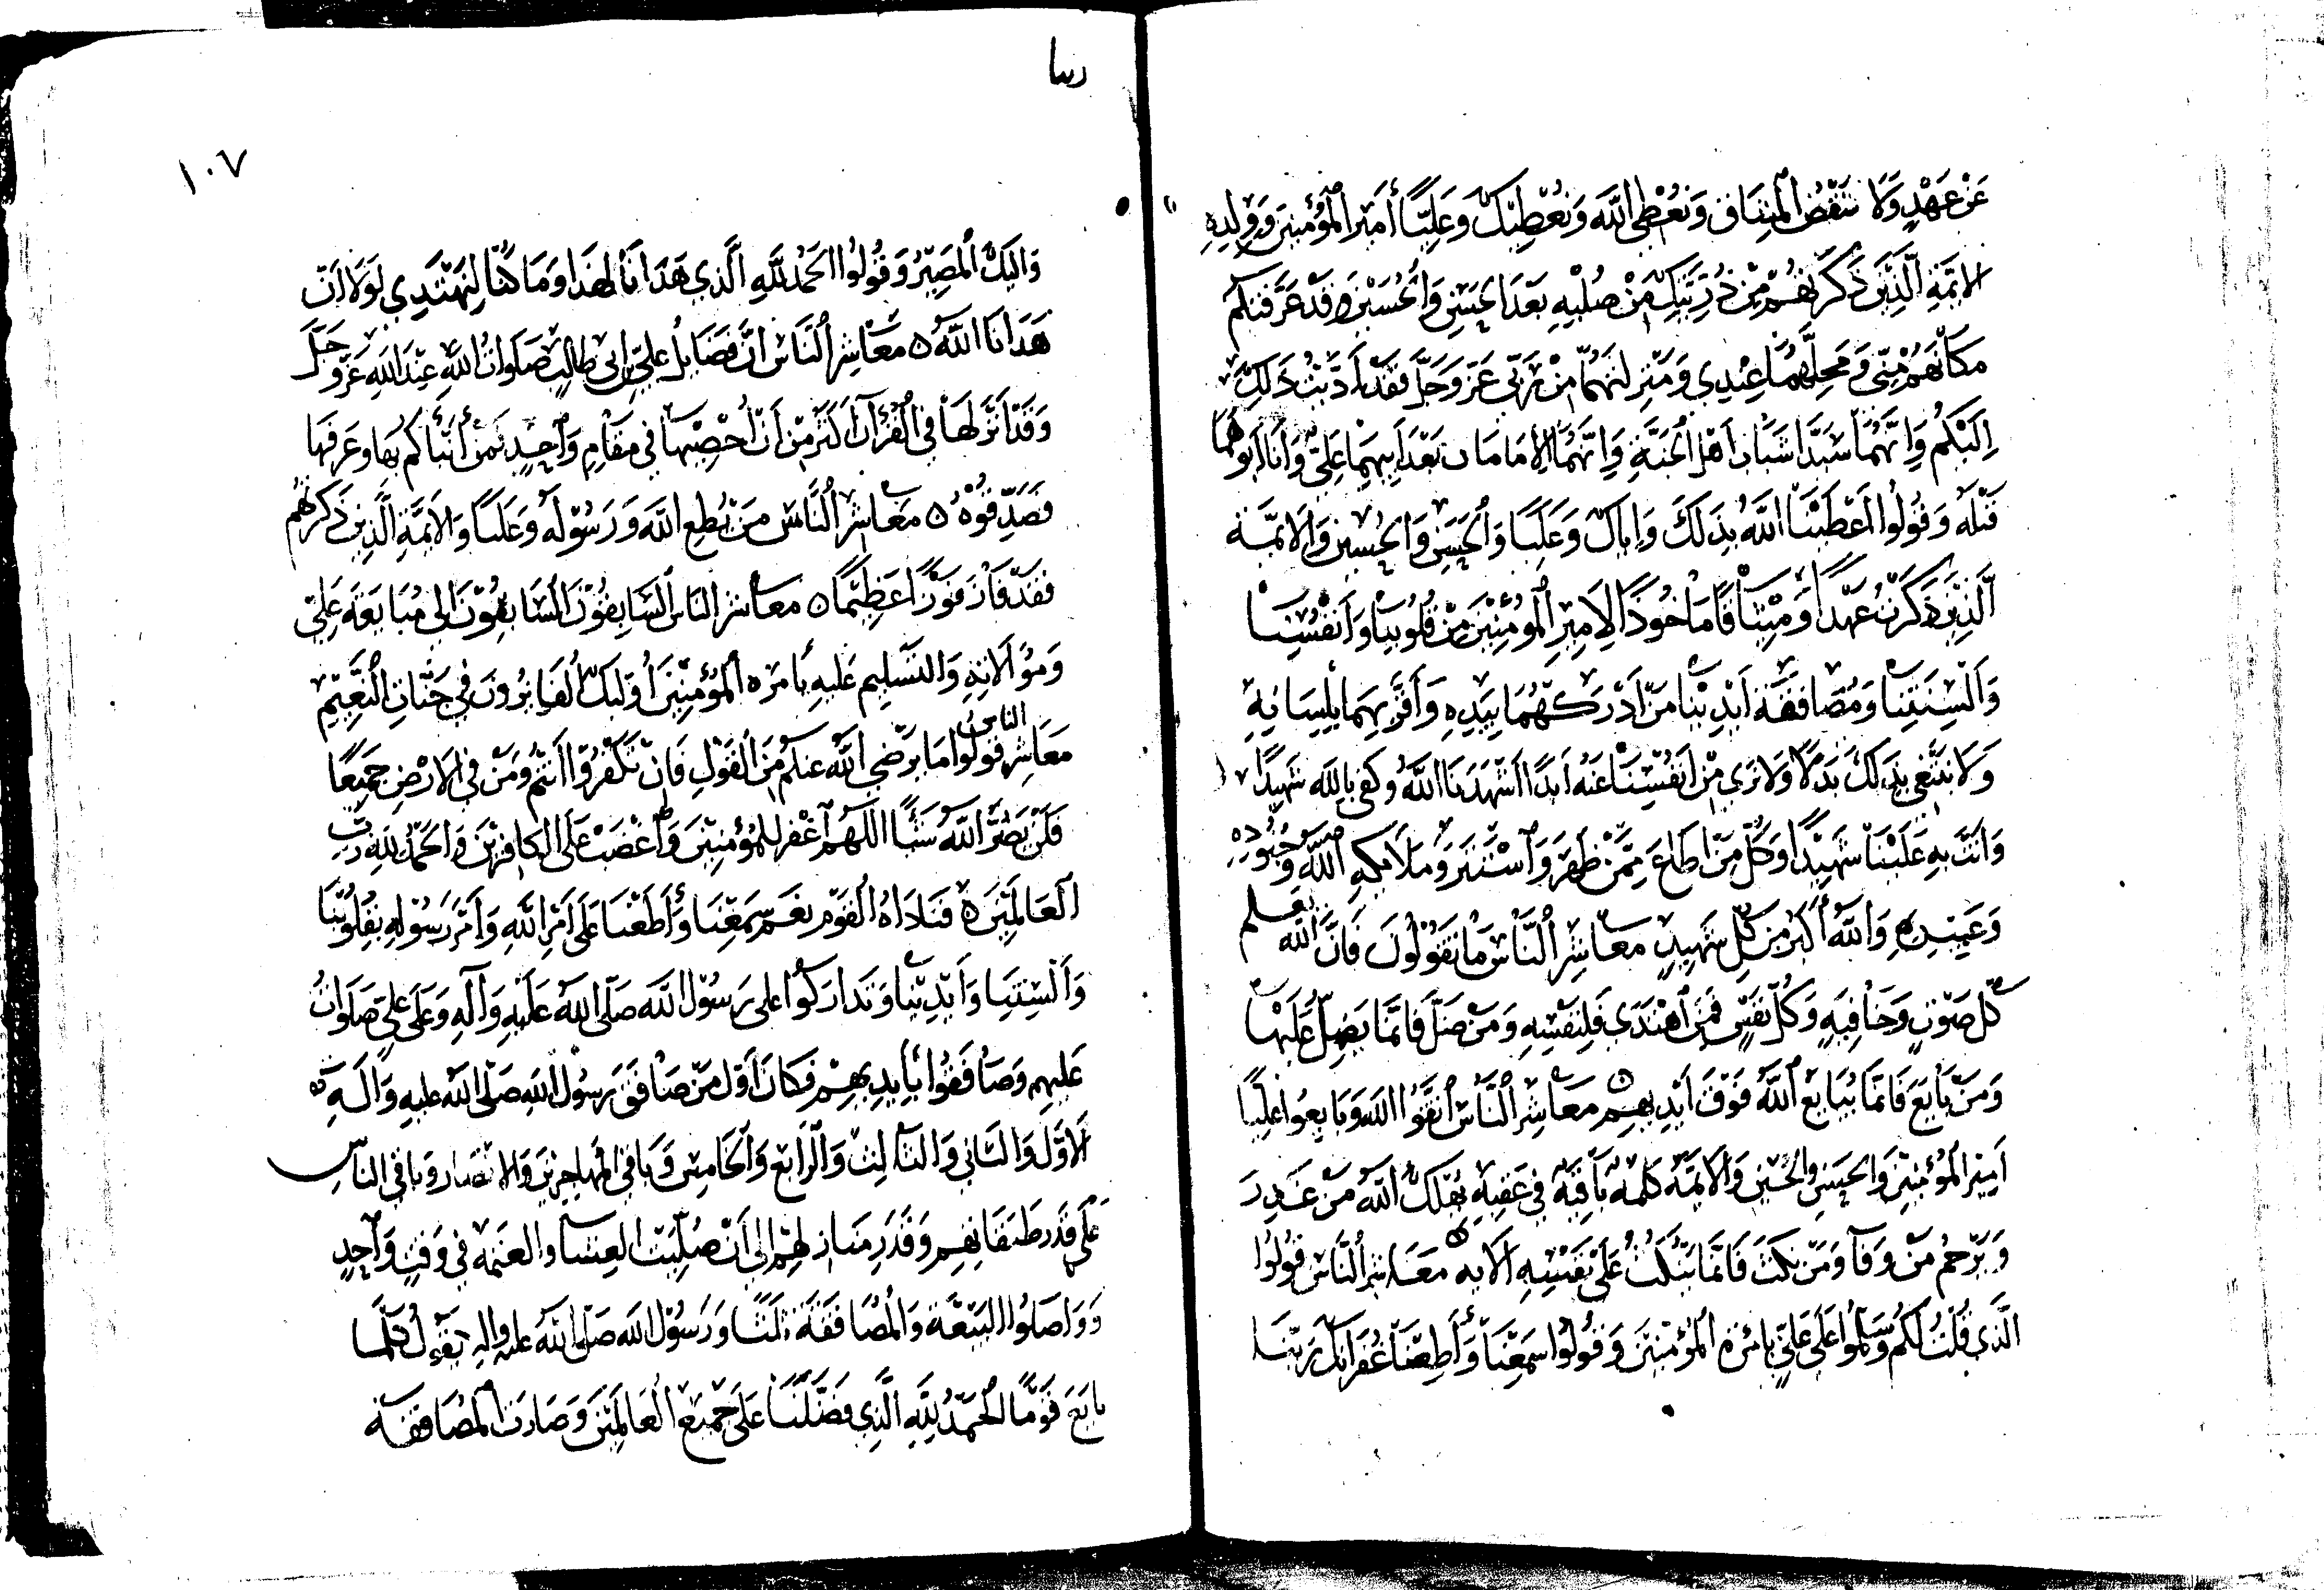 عَنْ عَهْدٍ وَلَا نَنْقُضُ الْمِيثَاقَ وَنُعْطِي اللَّهَ وَنُعْطِيكَ وَعَلِيًّا أَمِيرَ الْمُؤْمِنِينَ وَوُلْدِهِ
الائِمَّةِ الَّذِينَ ذَكَرْتَهُمْ مِنْ ذُرِّيَّتِكَ مِنْ صُلْبِهِ بَعْدَ الْحَسَنِ وَالْحُسَيْنِ وَقَدْ عَرَّفْتُكُمْ
مَكَانَهُمْ مِنِّي وَمَحِلَّهُمَا عِنْدِي وَمَنْزِلَتَهُمَا مِنْ رَبِّي عَزَّ وَجَلَّ فَقَدْ أَدَّيْتُ ذَلِكَ
اِلَيْكُمْ وَاِنَّهُمَا سَيِّدَا شَبَابِ اَهْلِ الْجَنَّةِ وَاِنَّهُمَا الاِمَامَانِ بَعْدَ اَبِيهِمَا عَلِيٍّ وَأَنَا اَبُوهُمَا
قَبْلَهُ وَقُولُوا أَعْطَيْنَا اللَّهَ بِذَلِكَ وَاِيَّاكَ وَعَلِيًّا وَالْحَسَنَ وَالْحُسَيْنَ وَالائِمَّةَ
الَّذِينَ ذَكَرْتَ عَهْدًا وَمِيثَاقًا مَأْخُوذًا لِاَمِيرِ الْمُؤْمِنِينَ مِنْ قُلُوبِنَا وَاَنْفُسِنَا
وَأَلْسِنَتِنَا وَمُصَافَقَةِ اَيْدِينَا مَنْ اَدْرَكَهُمَا بِيَدِهِ وَأَقَرَّ بِهِمَا بِلِسَانِهِ
وَلَا نَبْتَغِي بِذَلِكَ بَدَلًا وَلَا نَرَى مِنْ اَنْفُسِنَا عَنْهُ اَبَدًا أَشْهَدْنَا اللَّهَ وَكَفَى بِاللَّهِ شَهِيدًا
وَاَنْتَ بِهِ عَلَيْنَا شَهِيدًا وَكُلُّ مَنْ اَطَاعَ مِمَّنْ ظَهَرَ وَاسْتَتَرَ وَمَلَائِكَةِ اللَّهِ وَجُنُودِهِ
وَعَبِيدِهِ وَاللَّهُ أَكْبَرُ مِنْ كُلِّ شَهِيدٍ مَعَاشِرَ النَّاسِ مَا تَقُولُونَ فَاِنَّ اللَّهَ يَعْلَمُ
كُلَّ صَوْتٍ وَخَافِيَةٍ وَكُلَّ نَفْسٍ فَمَنِ اهْتَدَى فَلِنَفْسِهِ وَمَنْ ضَلَّ فَاِنَّمَا يَضِلُّ عَلَيْهَا
وَمَنْ بَايَعَ فَاِنَّمَا يُبَايِعُ اللَّهَ فَوْقَ اَيْدِيهِمْ ه مَعَاشِرَ النَّاسِ اتَّقُوا اللَّهَ وَبَايِعُوا عَلِيًّا
اَمِيرَ الْمُؤْمِنِينَ وَالْحَسَنَ وَالْحُسَيْنَ وَالائِمَّةَ كَلِمَةً بَاقِيَةً فِي عَقِبِهِ يُهْلِكُ اللَّهُ مَنْ غَدَرَ
وَيَرْحَمُ مَنْ وَفَا وَمَنْ نَكَثَ فَاِنَّمَا يَنْكُثُ عَلَى نَفْسِهِ الايه ه مَعَاشِرَ النَّاسِ قُولُوا
الَّذِي قُلْتُ لَكُمْ وَسَلِّمُوا عَلَى عَلِيٍّ بِاِمْرَةِ الْمُؤْمِنِينَ وَقُولُوا سَمِعْنَا وَأَطَعْنَا غُفْرَانَكَ رَبَّنَا
١٠٧
وَاِلَيْكَ الْمَصِيرُ وَقُولُوا الْحَمْدُ لِلَّهِ الَّذِي هَدَانَا لِهَذَا وَمَا كُنَّا لِنَهْتَدِيَ لَوْلَا اَنْ
هَدَانَا اللَّهُ ه مَعَاشِرَ النَّاسِ اِنَّ فَضَايِلَ عَلِيِّ بْنِ اَبِي طَالِبٍ صَلَوَاتُ اللَّهِ عِنْدَ اللَّهِ عَزَّ وَجَلَّ
وَقَدْ اَنْزَلَهَا فِي الْقُرْآنِ اَكْثَرُ مِنْ اَنْ اُحْصِيَهَا فِي مَقَامٍ وَاحِدٍ فَمَنْ أَنْبَأَكُمْ بِهَا وَعَرَفَهَا
فَصَدِّقُوهُ ه مَعَاشِرَ النَّاسِ مَنْ يُطِعِ اللَّهَ وَرَسُولَهُ وَعَلِيًّا وَالائِمَّةَ الَّذِينَ ذَكَرْتُهُمْ
فَقَدْ فَازَ فَوْزًا عَظِيمًا ه مَعَاشِرَ النَّاسِ السَّابِقُونَ السَّابِقُونَ اِلَى مُبَايَعَةِ عَلِيٍّ
وَمُوَالَاتِهِ وَالتَّسْلِيمِ عَلَيْهِ بِامْرَةِ الْمُؤْمِنِينَ أُولَئِكَ الْفَايِزُونَ فِي جَنَّاتِ النَّعِيمِ
مَعَاشِرَ النَّاسِ قُولُوا مَا يَرْضَى اللَّهُ عَنْكُمْ مِنَ الْقَوْلِ فَاِنْ تَكْفُرُوا اَنْتُمْ وَمَنْ فِي الْاَرْضِ جَمِيعًا
فَلَنْ يَضُرَّ اللَّهَ شَيْئًا اللَّهُمَّ اغْفِرْ لِلْمُؤْمِنِينَ وَاغْضَبْ عَلَى الْكَافِرِينَ وَالْحَمْدُ لِلَّهِ رَبِّ
الْعَالَمِينَ ه فَنَادَاهُ الْقَوْمُ نَعَمْ سَمِعْنَا وَأَطَعْنَا عَلَى أَمْرِ اللَّهِ وَأَمْرِ رَسُولِهِ بِقُلُوبِنَا
وَأَلْسِنَتِنَا وَأَيْدِينَا وَتَدَارَكُوا عَلَى رَسُولِ اللَّهِ صَلَّى اللَّهُ عَلَيْهِ وَآلِهِ وَعَلَى عَلِيٍّ صَلَوَاتُ
عَلَيْهِمْ وَصَافَقُوا بِأَيْدِيهِمْ فَكَانَ أَوَّلَ مَنْ صَافَقَ رَسُولَ اللَّهِ صَلَّى اللَّهُ عَلَيْهِ وَآلِهِ
الْاَوَّلُ وَالثَّانِي وَالثَّالِثُ وَالرَّابِعُ وَالْخَامِسُ وَبَاقِي الْمُهَاجِرِينَ وَالْانْصَارِ وَبَاقِي النَّاسِ
عَلَى قَدْرِ طَبَقَاتِهِمْ وَقَدْرِ مَنَازِلِهِمْ اِلَى أَنْ صُلِّيَتِ الْعِشَاءُ وَالْعَتَمَةُ فِي وَقْتٍ وَاحِدٍ
وَوَاصَلُوا الْبَيْعَةَ وَالْمُصَافَقَةَ ثَلَثًا وَرَسُولُ اللَّهِ صَلَّى اللَّهُ عَلَيْهِ وَالِهِ يَقُولُ كُلَّمَا
بَايَعَ قَوْمًا الْحَمْدُ لِلَّهِ الَّذِي فَضَّلَنَا عَلَى جَمِيعِ الْعَالَمِينَ وَصَارَتِ الْمُصَافَقَة